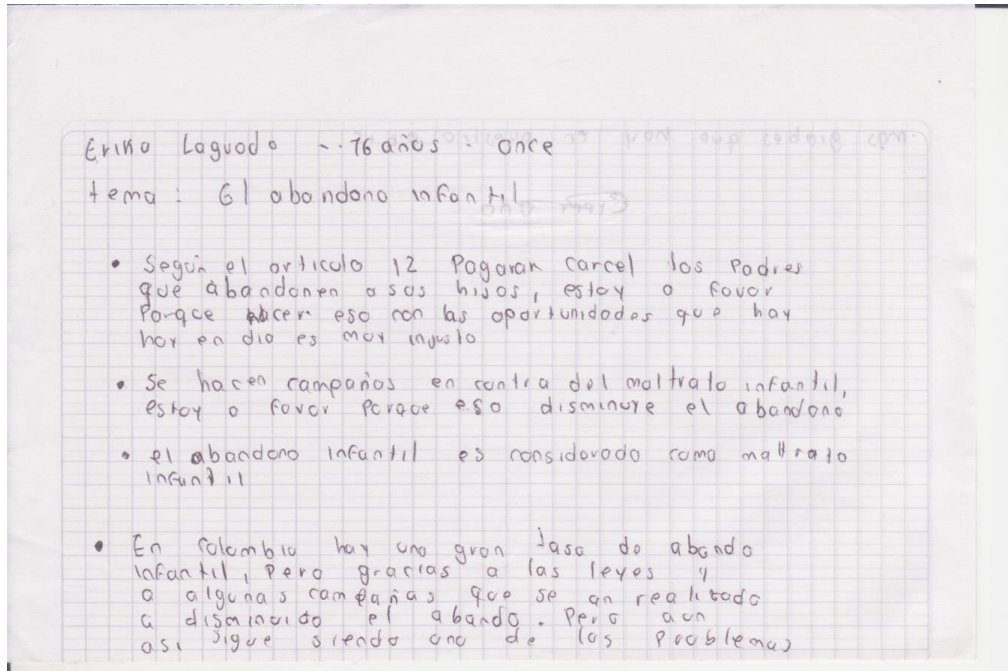 Erika Laguado - . 16 años . once
tema : El abandono infantil
• Según el articulo 12 Pagaran carcel los Padres
que abandonen a sus hijos, estoy a favor
Porque hacer eso con las oportunidades que hay
hoy en dia es muy injusto
• Se hacen campañas en contra del maltrato infantil,
estoy a favor Porque eso disminuye el abandono
• el abandono infantil es considarado como maltrato
infantil
• En Colombia hay una gran tasa de abando
infantil, Pero gracias a las leyes y
a algunas campañas que se an realizado
a disminuido el abando. Pero aun
asi sigue siendo uno de los Problemas